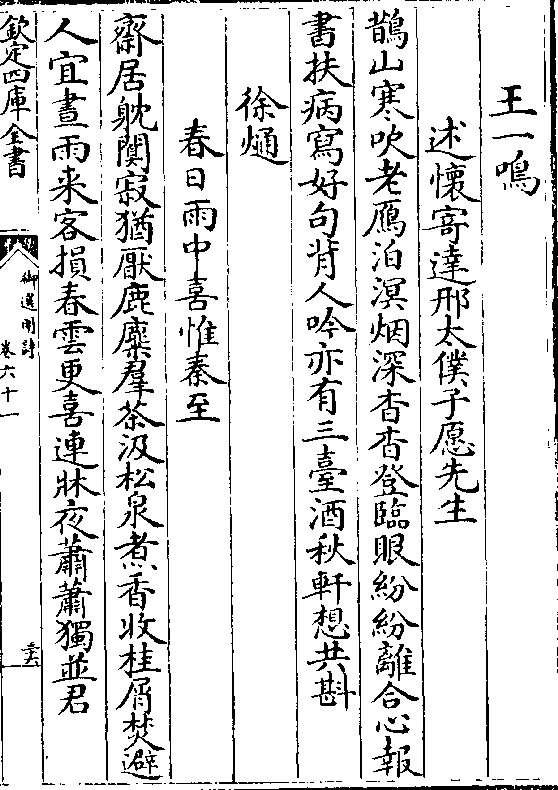 王一鳴
述懷寄達邢太僕子愿先生
鵲山寒吹老鴈泊溟烟深杳杳登臨眼紛紛離合心報
書扶病寫好句背人吟亦有三臺酒秋軒想共斟
徐熥
春日雨中喜惟秦至
齋居躭闃寂猶厭鹿麋羣茶汲松泉煮香收桂屑焚避
人宜晝雨来客損春雲更喜連牀夜蕭蕭獨並君
欽定四庫全書
御選明詩
卷六十一